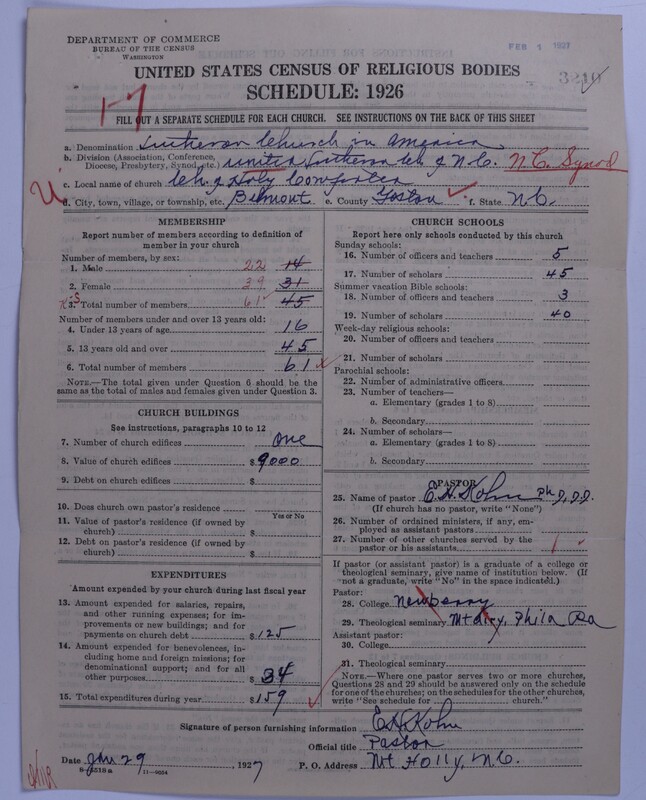 DEPARTMENT OF COMMERCE
BUREAU OF THE CENSUS
WASHINGTON
FEB 1 1927
3210
UNITED STATES CENSUS OF RELIGIOUS BODIES
SCHEDULE: 1926
1-7
FILL OUT A SEPARATE SCHEDULE FOR EACH CHURCH. SEE INSTRUCTIONS ON THE BACK OF THIS SHEET
a. Denomination Lutheran Church in America
b. Division (Association, Conference, Diocese, Presbytery, Synod, etc.) United Lutheran Ch. of N.C. N.C. Synod
c. Local name of church Ch. of Holy Comforter
d. City, town, village, or township, etc. Belmont e. County Gaston f. State N.C.
MEMBERSHIP
Report number of members according to definition of
member in your church
Number of members, by sex:
1. Male 22 14
2. Female 39 31
3. Total number of members 61 45
Number of members under and over 13 years old:
4. Under 13 years of age 16
5. 13 years old and over 45
6. Total number of members 61
NOTE.—The total given under Question 6 should be the
same as the total of males and females given under Question 3.
CHURCH BUILDINGS
See instructions, paragraphs 10 to 12
7. Number of church edifices one
8. Value of church edifices $ 9000
9. Debt on church edifices $
10. Does church own pastor's residence
Yes or No
11. Value of pastor's residence (if owned by
church) $
12. Debt on pastor's residence (if owned by
church) $
EXPENDITURES
Amount expended by your church during last fiscal year
13. Amount expended for salaries, repairs,
and other running expenses; for im-
provements or new buildings; and for
payments on church debt $ 125
14. Amount expended for benevolences, in-
cluding home and foreign missions; for
denominational support; and for all
other purposes $ 34
15. Total expenditures during year $ 159
CHURCH SCHOOLS
Report here only schools conducted by this church
Sunday schools:
16. Number of officers and teachers 5
17. Number of scholars 45
Summer vacation Bible schools:
18. Number of officers and teachers 3
19. Number of scholars 40
Week-day religious schools:
20. Number of officers and teachers
21. Number of scholars
Parochial schools:
22. Number of administrative officers
23. Number of teachers—
a. Elementary (grades 1 to 8)
b. Secondary
24. Number of scholars—
a. Elementary (grades 1 to 8)
b. Secondary
PASTOR
25. Name of pastor E.H. Kohn Ph D, D.D.
(If church has no pastor, write "None")
26. Number of ordained ministers, if any, em-
ployed as assistant pastors
27. Number of other churches served by the
pastor or his assistants 1
If pastor (or assistant pastor) is a graduate of a college or
theological seminary, give name of institution below. (If
not a graduate, write "No" in the space indicated.)
Pastor:
28. College Newberry
29. Theological seminary Mt Airy, Phila Pa
Assistant pastor:
30. College
31. Theological seminary
NOTE.—Where one pastor serves two or more churches,
Questions 28 and 29 should be answered only on the schedule
for one of the churches; on the schedules for the other churches,
write "See schedule for church."
Signature of person furnishing information E.H. Kohn
Official title Pastor
Date Jan 29, 1927 P. O. Address Mt Holly, N.C.
8-5518a 11-9664